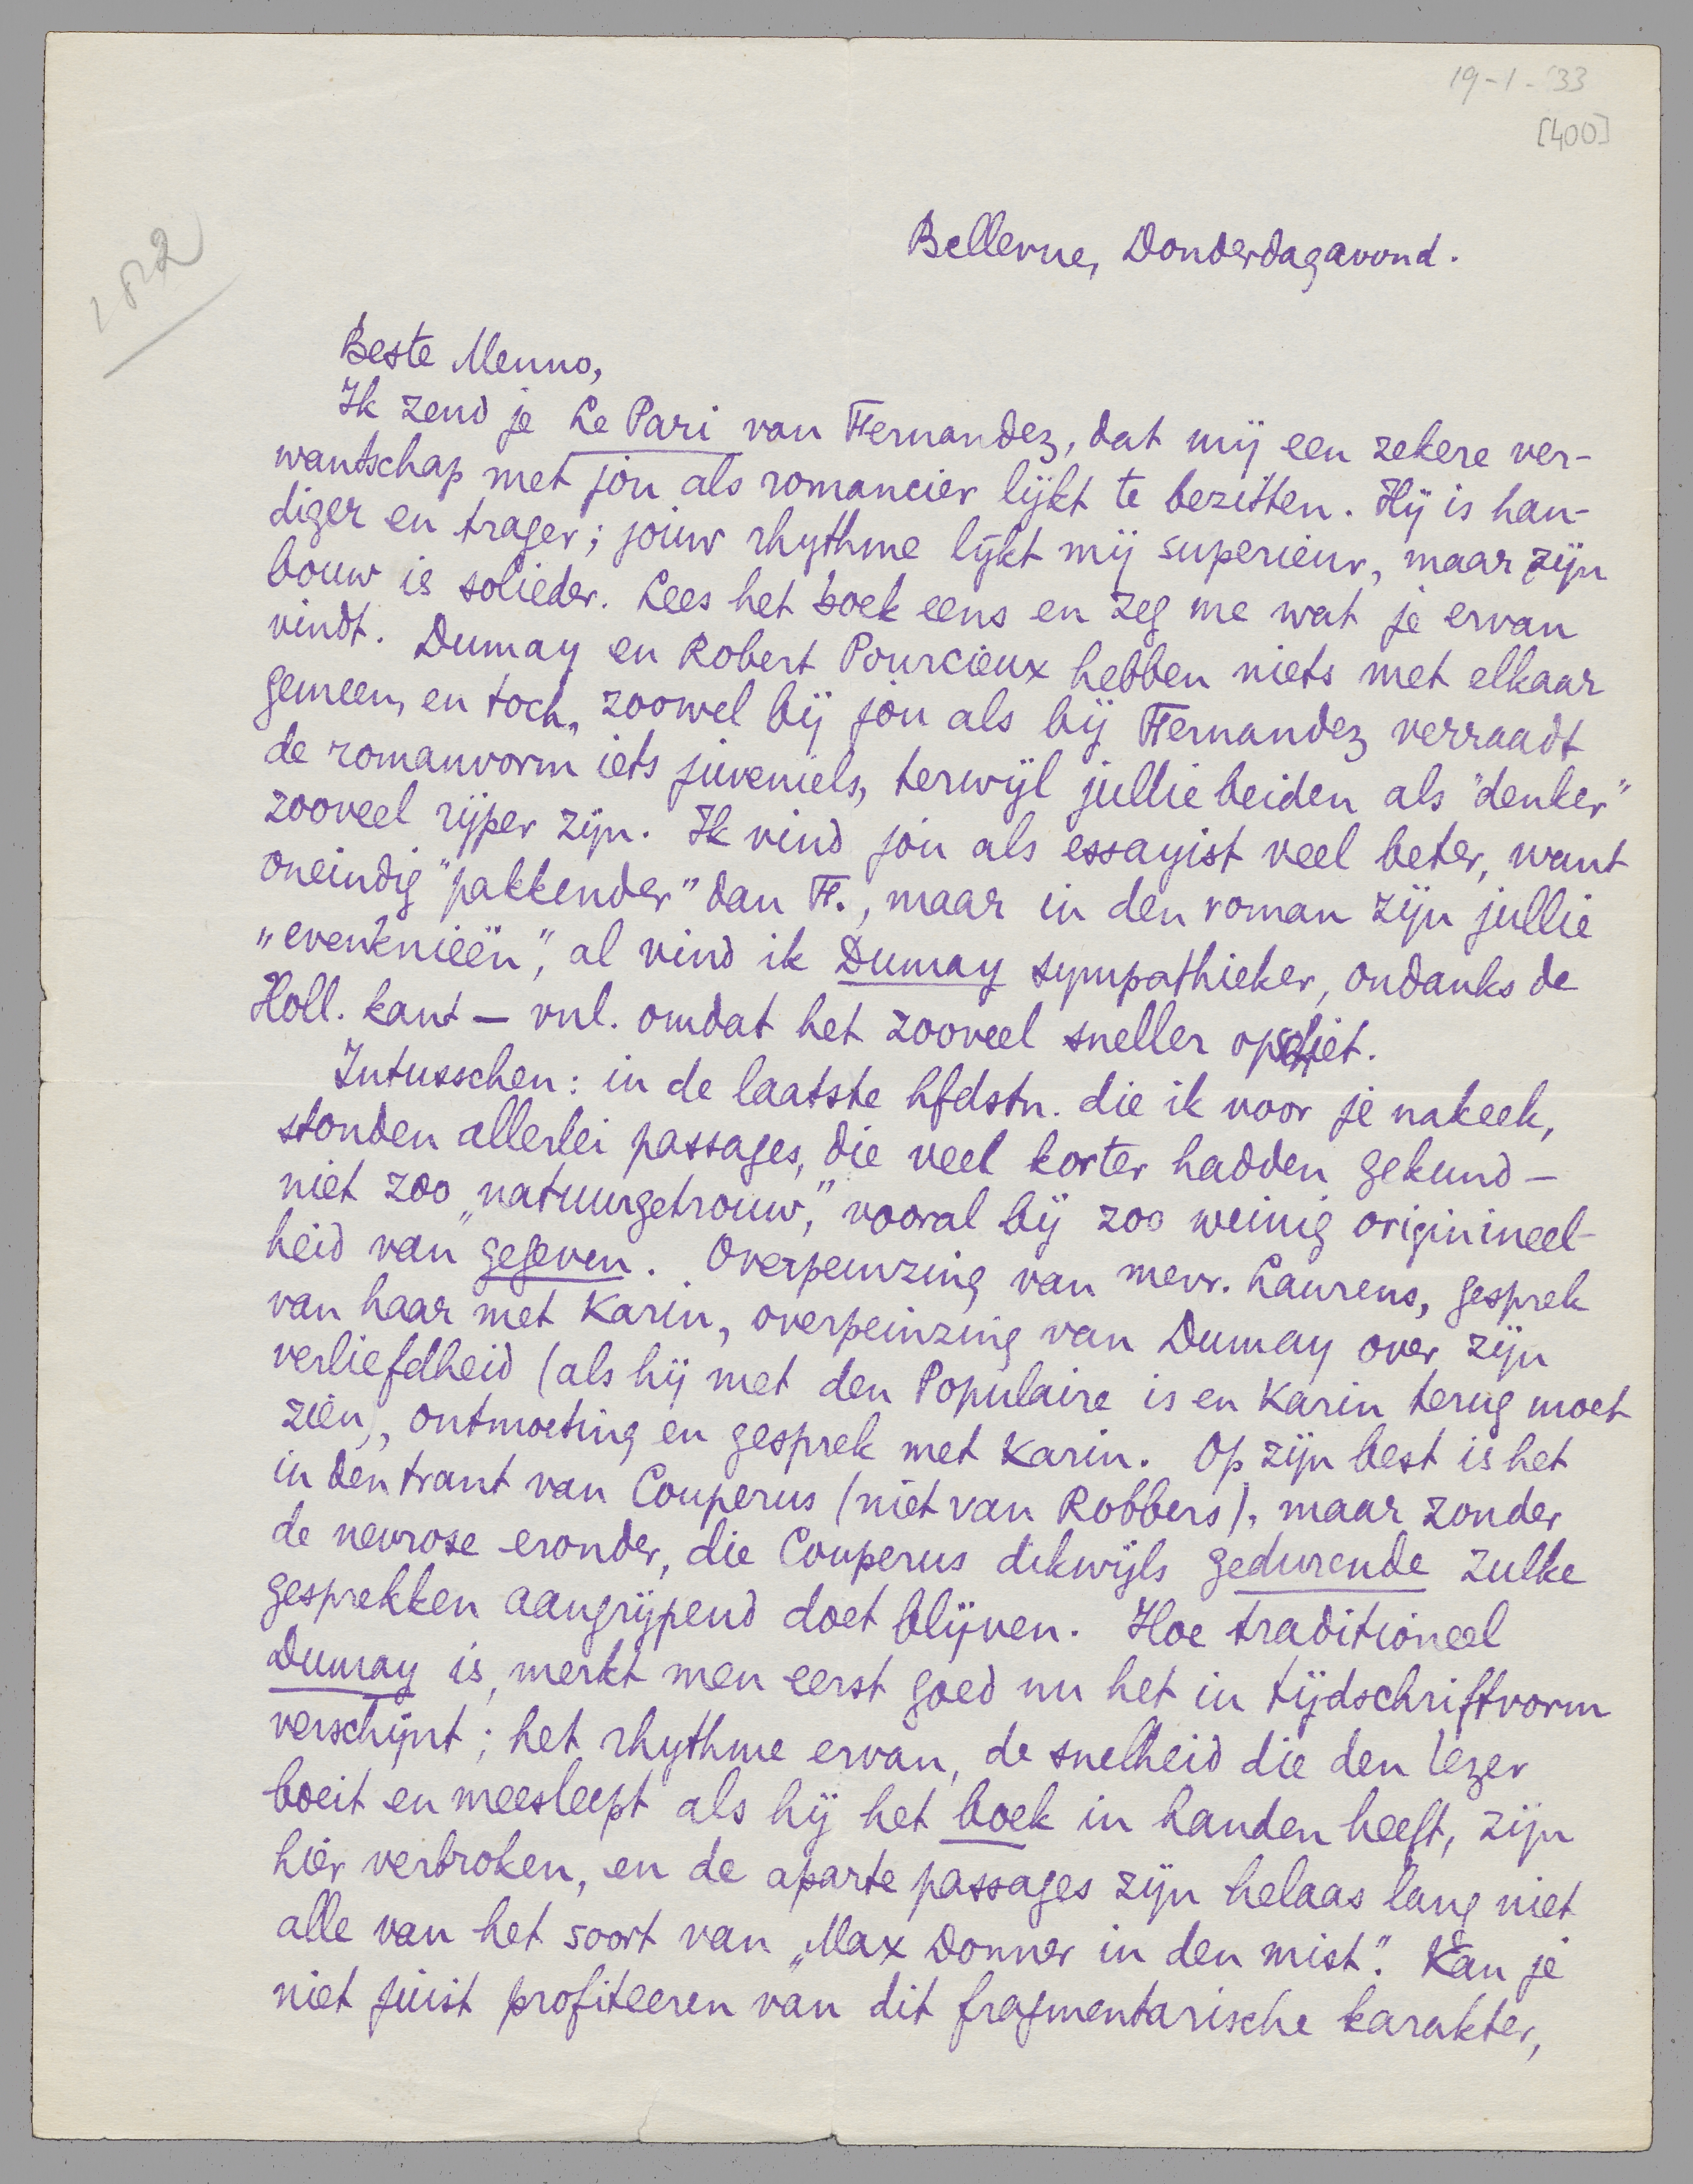 19-1-'33
[400]
Bellevue, Donderdagavond.
Beste Menno,
Ik zend je Le Pari van Fernandez, dat mij een zekere ver-
wantschap met jou als romancier lijkt te bezitten. Hij is han-
diger en trager; jouw rhythme lijkt mij superieur, maar zijn
bouw is solieder. Lees het boek eens en zeg me wat je ervan
vindt. Dumay en Robert Pourcieux hebben niets met elkaar
gemeen, en toch, zoowel bij jou als bij Fernandez verraadt
de romanvorm iets juveniels, terwijl jullie beiden als "denker"
zooveel rijper zijn. Ik vind jou als essayist veel beter, want
oneindig "pakkender" dan F., maar in den roman zijn jullie
„evenknieën", al vind ik Dumay sympathieker, ondanks de
Holl. kant — vnl. omdat het zooveel sneller opschiet.
Intusschen: in de laatste hfdstn. die ik voor je nakeek,
stonden allerlei passages, die veel korter hadden gekund —
niet zoo „natuurgetrouw", vooral bij zoo weinig originineel-
heid van gegeven. Overpeinzing van mevr. Laurens, gesprek
van haar met Karin, overpeinzing van Dumay over zijn
verliefdheid (als hij met den Populaire is en Karin terug moet
zien), ontmoeting en gesprek met Karin. Op zijn best is het
in den trant van Couperus (niet van Robbers), maar zonder
de nevrose eronder, die Couperus dikwijls gedurende zulke
gesprekken aangrijpend doet blijven. Hoe traditioneel
Dumay is, merkt men eerst goed nu het in tijdschriftvorm
verschijnt; het rhythme ervan, de snelheid die den lezer
boeit en meesleept als hij het boek in handen heeft, zijn
hier verbroken, en de aparte passages zijn helaas lang niet
alle van het soort van „Max Donner in den mist". Kan je
niet juist profiteeren van dit fragmentarische karakter,